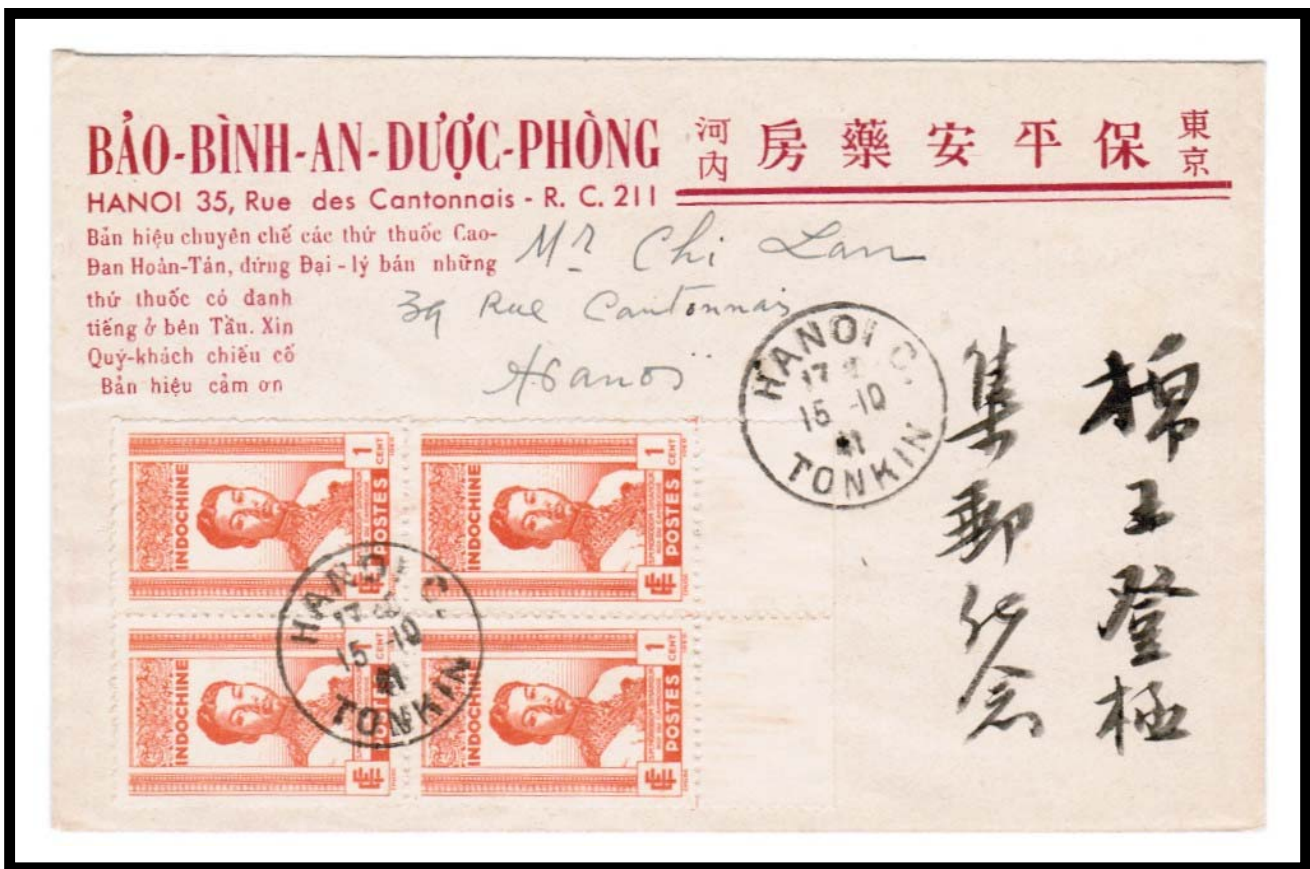 BẢO-BÌNH-AN-DƯỢC-PHÒNG
HANOI 35, Rue des Cantonnais - R. C. 211
河内 房藥安平保 東京
Bản hiệu chuyên chế các thứ thuốc Cao-
Đan Hoàn-Tán, đứng Đại-lý bán những
thứ thuốc có danh
tiếng ở bên Tầu. Xin
Quý-khách chiếu cố
Bản hiệu cảm ơn
Mr Chi Lan
39 Rue Cantonnais
Hanoï
HANOI C.
15 -10
41
TONKIN
棉王登極
集郵紀念
INDOCHINE
1 CENT
POSTES
INDOCHINE
1 CENT
POSTES
HANOI C.
15 -10
41
TONKIN
INDOCHINE
1 CENT
POSTES
INDOCHINE
1 CENT
POSTES